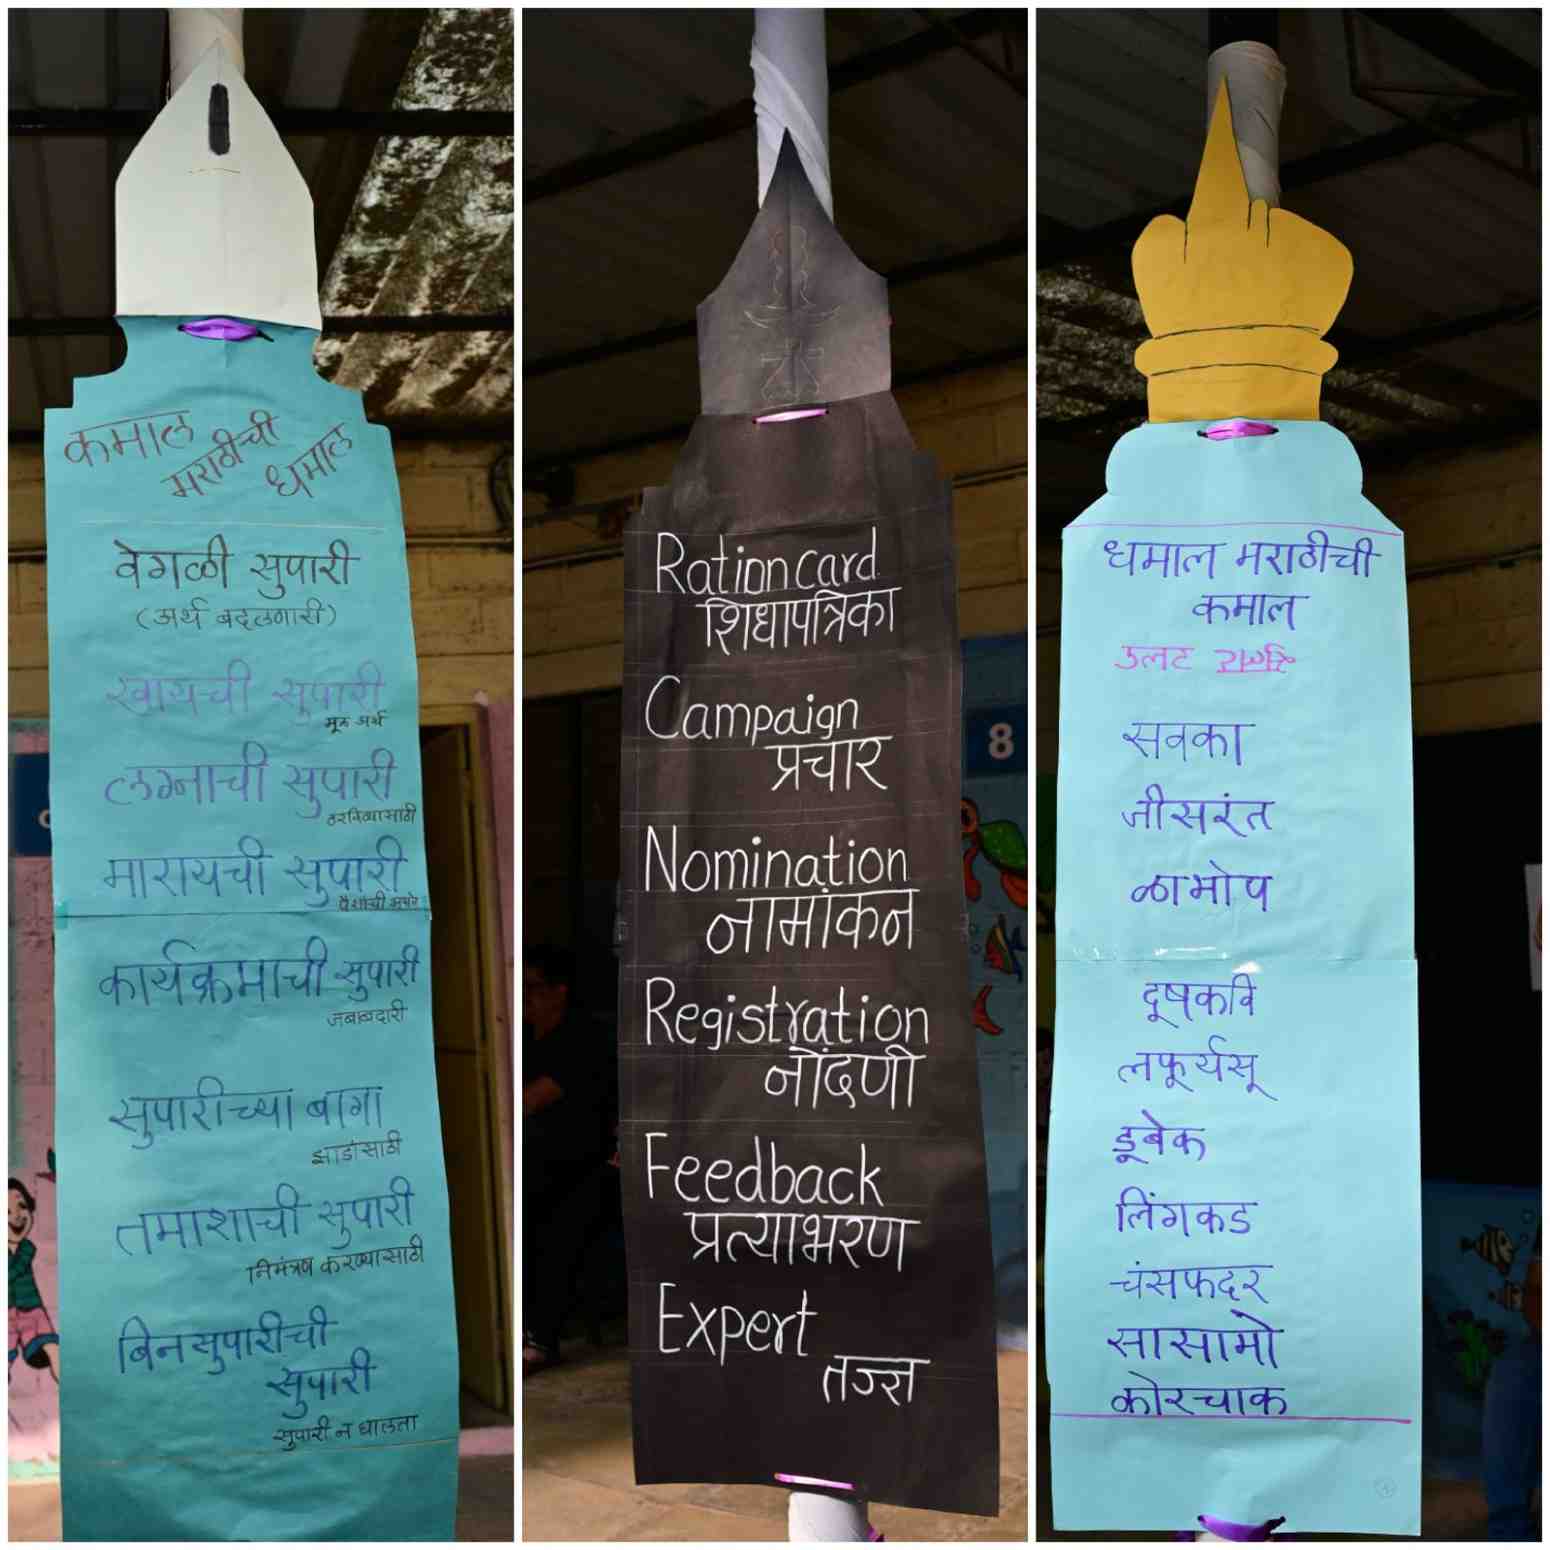 कमाल
मराठीची
धमाल
वेगळी सुपारी
(अर्थ बदलणारी)
खायची सुपारी
मूळ अर्थ
लग्नाची सुपारी
ठरविण्यासाठी
मारायची सुपारी
पैशांची
कार्यक्रमाची सुपारी
जबाबदारी
सुपारीच्या बागा
झाडांसाठी
तमाशाची सुपारी
निमंत्रण करण्यासाठी
बिनसुपारीची
सुपारी
सुपारी न घालता
Ration card
शिधापत्रिका
Campaign
प्रचार
Nomination
नामांकन
Registration
नोंदणी
Feedback
प्रत्याभरण
Expert
तज्ञ
8
धमाल मराठीची
कमाल
उलट
सवका
जीसरंत
ळामोप
दूषकवि
लफूर्यसू
डूबेक
लिंगकड
चंसफदर
सासामो
कोरचाक